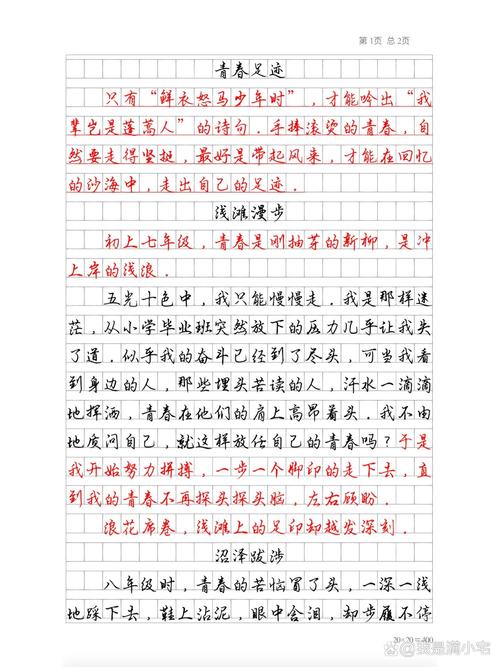 第1页 总2页
青春足迹
只有“鲜衣怒马少年时”，才能吟出“我
辈岂是蓬蒿人”的诗句．手捧滚烫的青春，自
然要走得坚挺，最好是带起风来，才能在回忆
的沙海中，走出自己的足迹．
浅滩漫步
初上七年级，青春是刚抽芽的新柳，是冲
上岸的浅浪．
五光十色中，我只能慢慢走．我是那样迷
茫，从小学毕业班突然放下的压力几乎让我头
了道．似乎我的奋斗已经到了尽头，可当我看
到身边的人，那些埋头苦读的人，汗水一滴滴
地挥洒，青春在他们的肩上高昂着头．我不由
地质问自己，就这样放任自己的青春吗？于是
我开始努力拼搏，一步一个脚印的走下去，直
到我的青春不再探头探头脑，左右顾盼．
浪花席卷，浅滩上的足印却越发深刻．
沼泽跋涉
八年级时，青春的苦恼冒了头，一深一浅
地踩下去，鞋上沾泥，眼中含泪，却步履不停
20×20=400
@我是满小宅